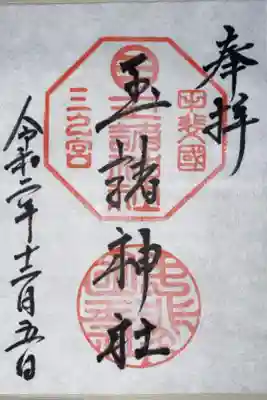 奉拝
甲斐國
玉諸神社
三之宮
令和二年十二月五日